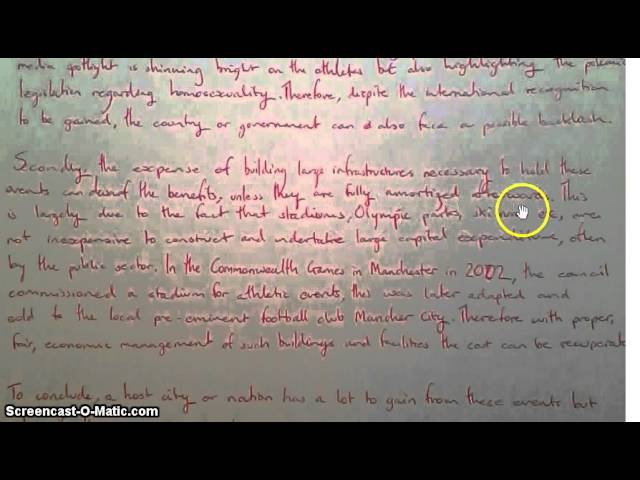 media spotlight is shinning bright on the athletes but also highlighting the polemic
legislation regarding homosexuality. Therefore, despite the international recognition
to be gained, the country or government can also face a possible backlash.
Scondly, the expense of building large infrastructures necessary to hold these
events can dwarf the benefits, unless they are fully amortized afterwards. This
is largely due to the fact that stadiums, Olympic parks, ski etc, are
not inexpensive to construct and undertake large capital expenditure, often
by the public sector. In the Commonwealth Games in Manchester in 2002, the council
commissioned a stadium for athletic events, this was later adapted and
sold to the local pre-eminent football club Mancher City. Therefore with proper,
fair, economic management of such buildings and facilities the cost can be recuperate
To conclude, a host city or nation has a lot to gain from these events but
Screencast-O-Matic.com